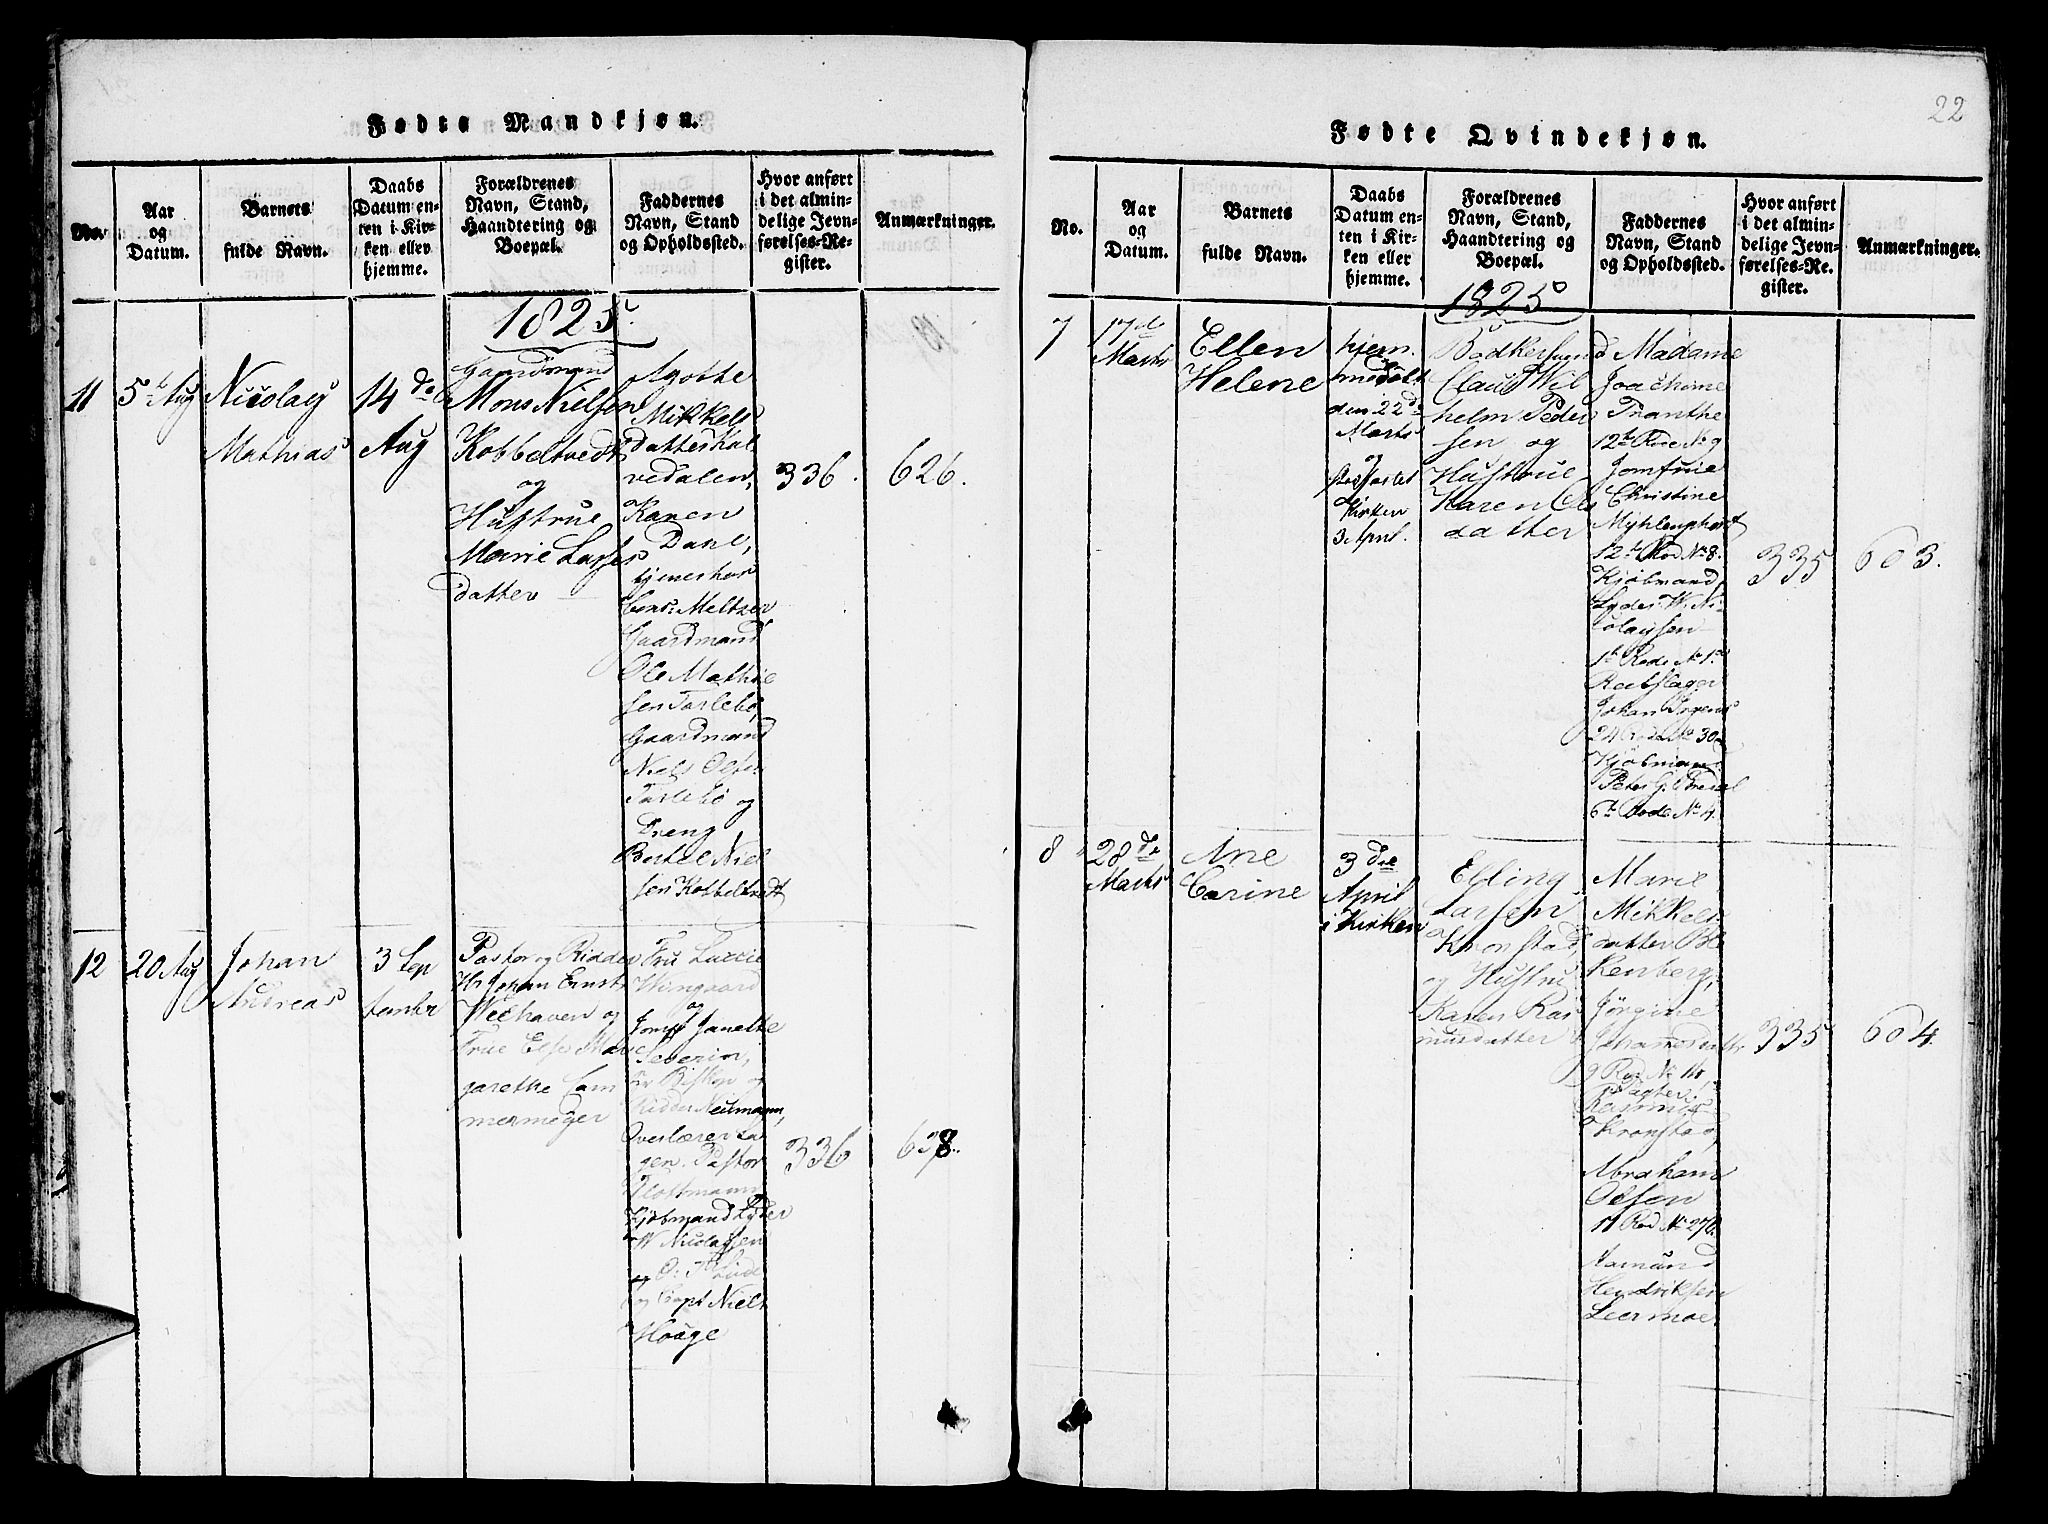 22
Fødte Mandkjøn.
No.
Aar
og
Datum.
Barnets
fulde Navn.
Daabs
Datum en-
ten i Kir-
ken eller
hjemme.
Forældrenes
Navn, Stand,
Haandtering og
Boepæl.
Faddernes
Navn, Stand
og Opholdssted.
Hvor anført
i det almin-
delige Jevn-
førelses-Re-
gister.
Anmærkninger.
1825.
11
5te Aug
Nicolay
Mathias
14de
Aug
Gaardmand
Mons Nielsen
Kobbeltvedt
og
Hustrue
Marie Lasses
datter
Agothe
Mikkels
datter Kal
vedalen,
Karen
Dahl,
tjenesthos
Cons: Meltzer
Gaardmand
Ole Mathie
sen Tarlebø,
Gaardmand
Niels Olsen
Tarlebø og
Dreng
Bertel Niel
sen Kobbeltvedt
336.
626.
12
20 Aug
Johan
Andreas
3 Sep
tember
Pastor og Ridder
Hr Johan Ernst
Welhaven og
Frue Else Mar
garethe Cam
mermeyer
Fru Luccie
Wingaard
og
Jomf Janette
Severin,
Hr Biskop og
Ridder Neumann,
Overlærer Sa
gen, Pastor
Flottmann
Kjøbmand Lyder
W Nicolaysen
og
og Capt Niels
Hooge
336
638.
Fødte Qvindekjøn.
No.
Aar
og
Datum.
Barnets
fulde Navn.
Daabs
Datum en-
ten i Kir-
ken eller
hjemme.
Forældrenes
Navn, Stand,
Haandtering og
Boepæl.
Faddernes
Navn, Stand
og Opholdssted.
Hvor anført
i det almin-
delige Jevn-
førelses-Re-
gister.
Anmærkninger.
1825
7
17de
Marts
Ellen
Helene
hjem
medøbt
den 22de
Marts
og
Kirken
3 April.
Bødkersvend
Claus Wil
helm Peder
sen og
Hustrue
Karen Ols
datter
Madame
Joachime
Tranthe
12te Rode No 9
Jomfrue
Christine
Myhlenphordt
12te Rod No 8.
Kjøbmand
Lyder W. Ni
colaysen
1te Rode No 1.
Reebslager
Johan Irgens
24 Rode No 30
Kjøbmand
Peter G.
6te Rode No 4.
335
603.
8
28de
Marts
Ane
Carine
3die
April
i Kirken
Elling
Larsen
Kronstad,
og Hustru
Karen Ras
musdatter
Marie
Mikkels
datter Ble
kenberg,
Jørgine
Johannesdattr
9 Rod No
Pagter
Rasmus
Kronstad,
Abraham
Olsen
11 Rod No 27
Aamund
Hendriksen
Leermoe
335
604.